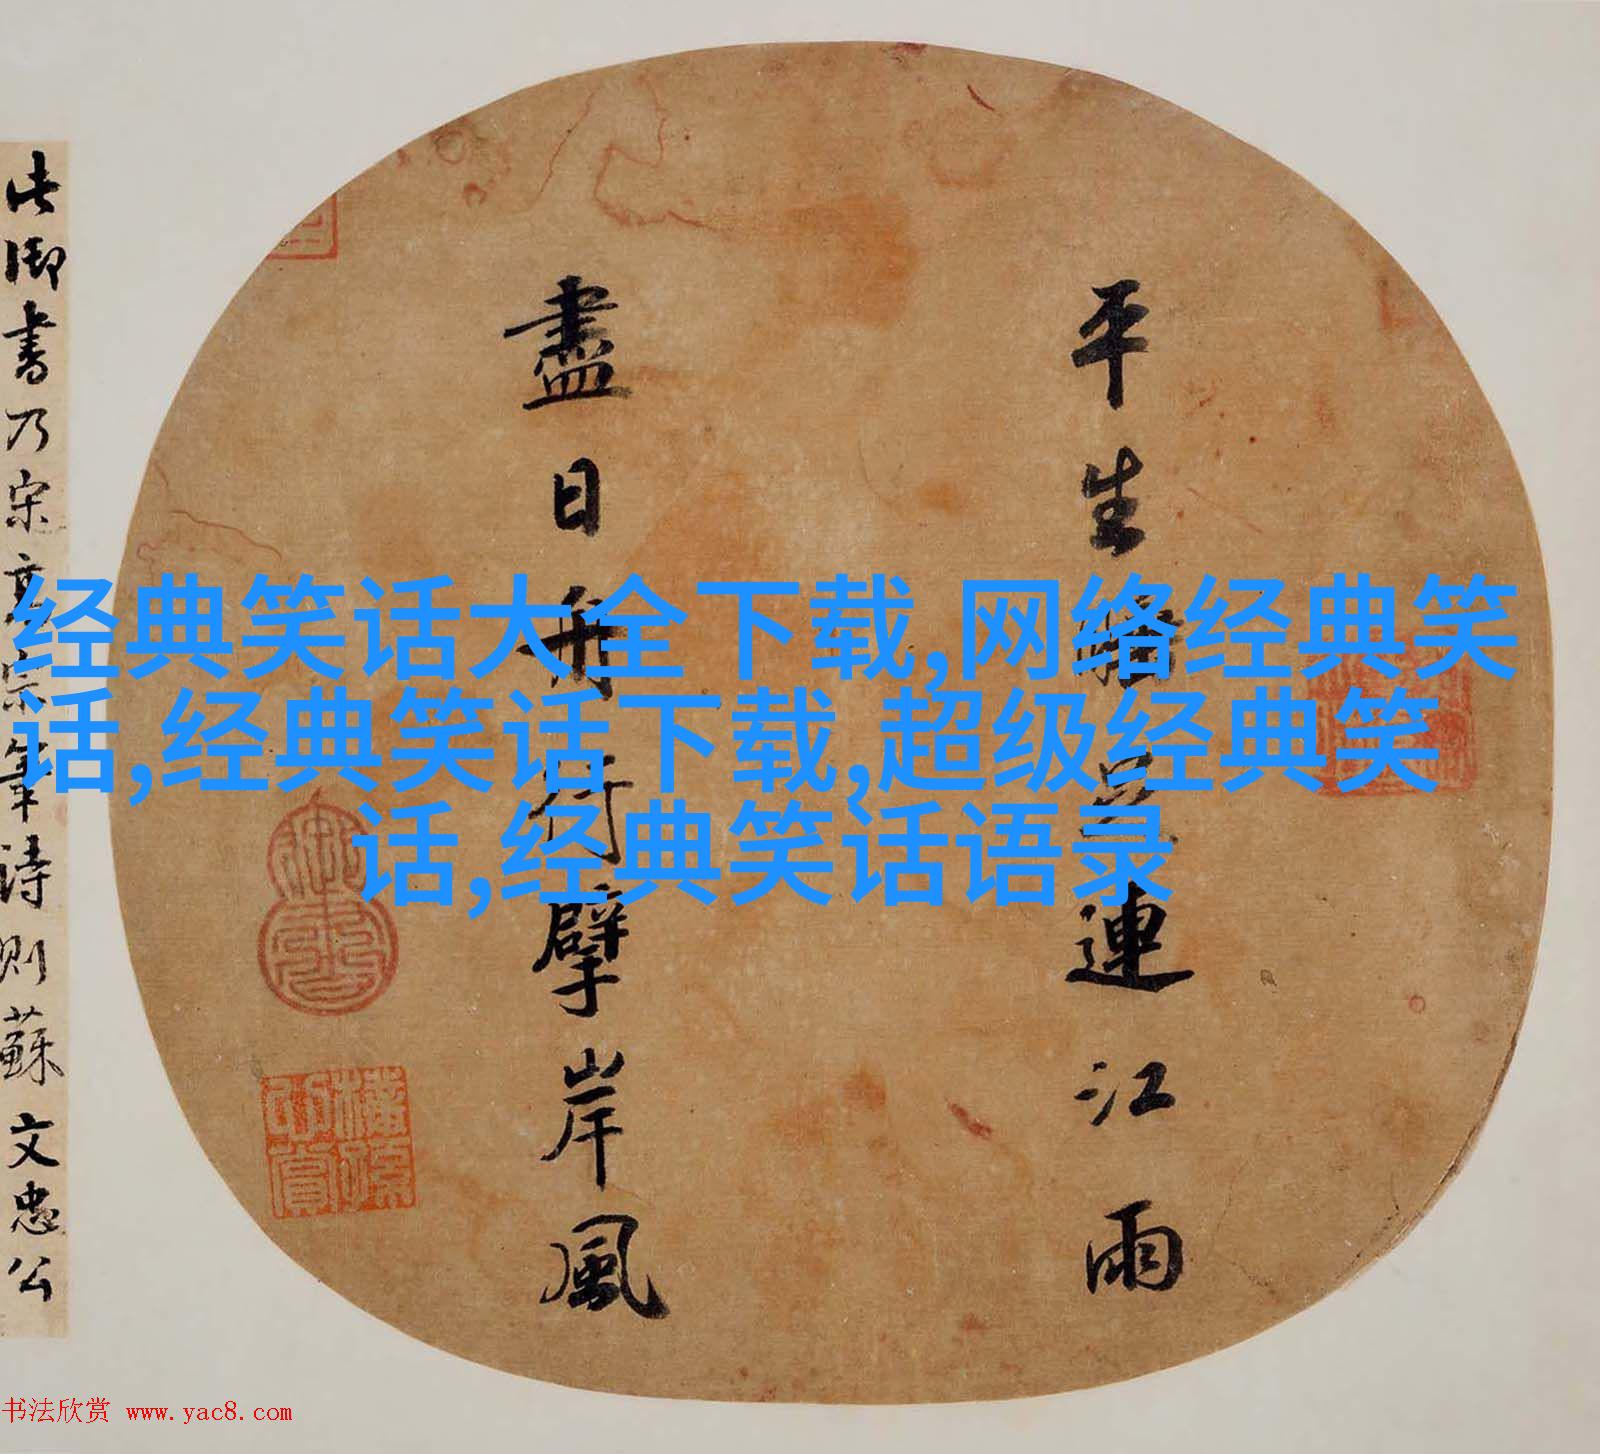 经典笑话大全下载,网络经典笑
话,经典笑话下载,超级经典笑
话,经典笑话语录
平生連江雨
盡日舟擘岸風
此御書乃宋高宗筆詩則蘇文忠公
书法欣赏 www.yac8.com